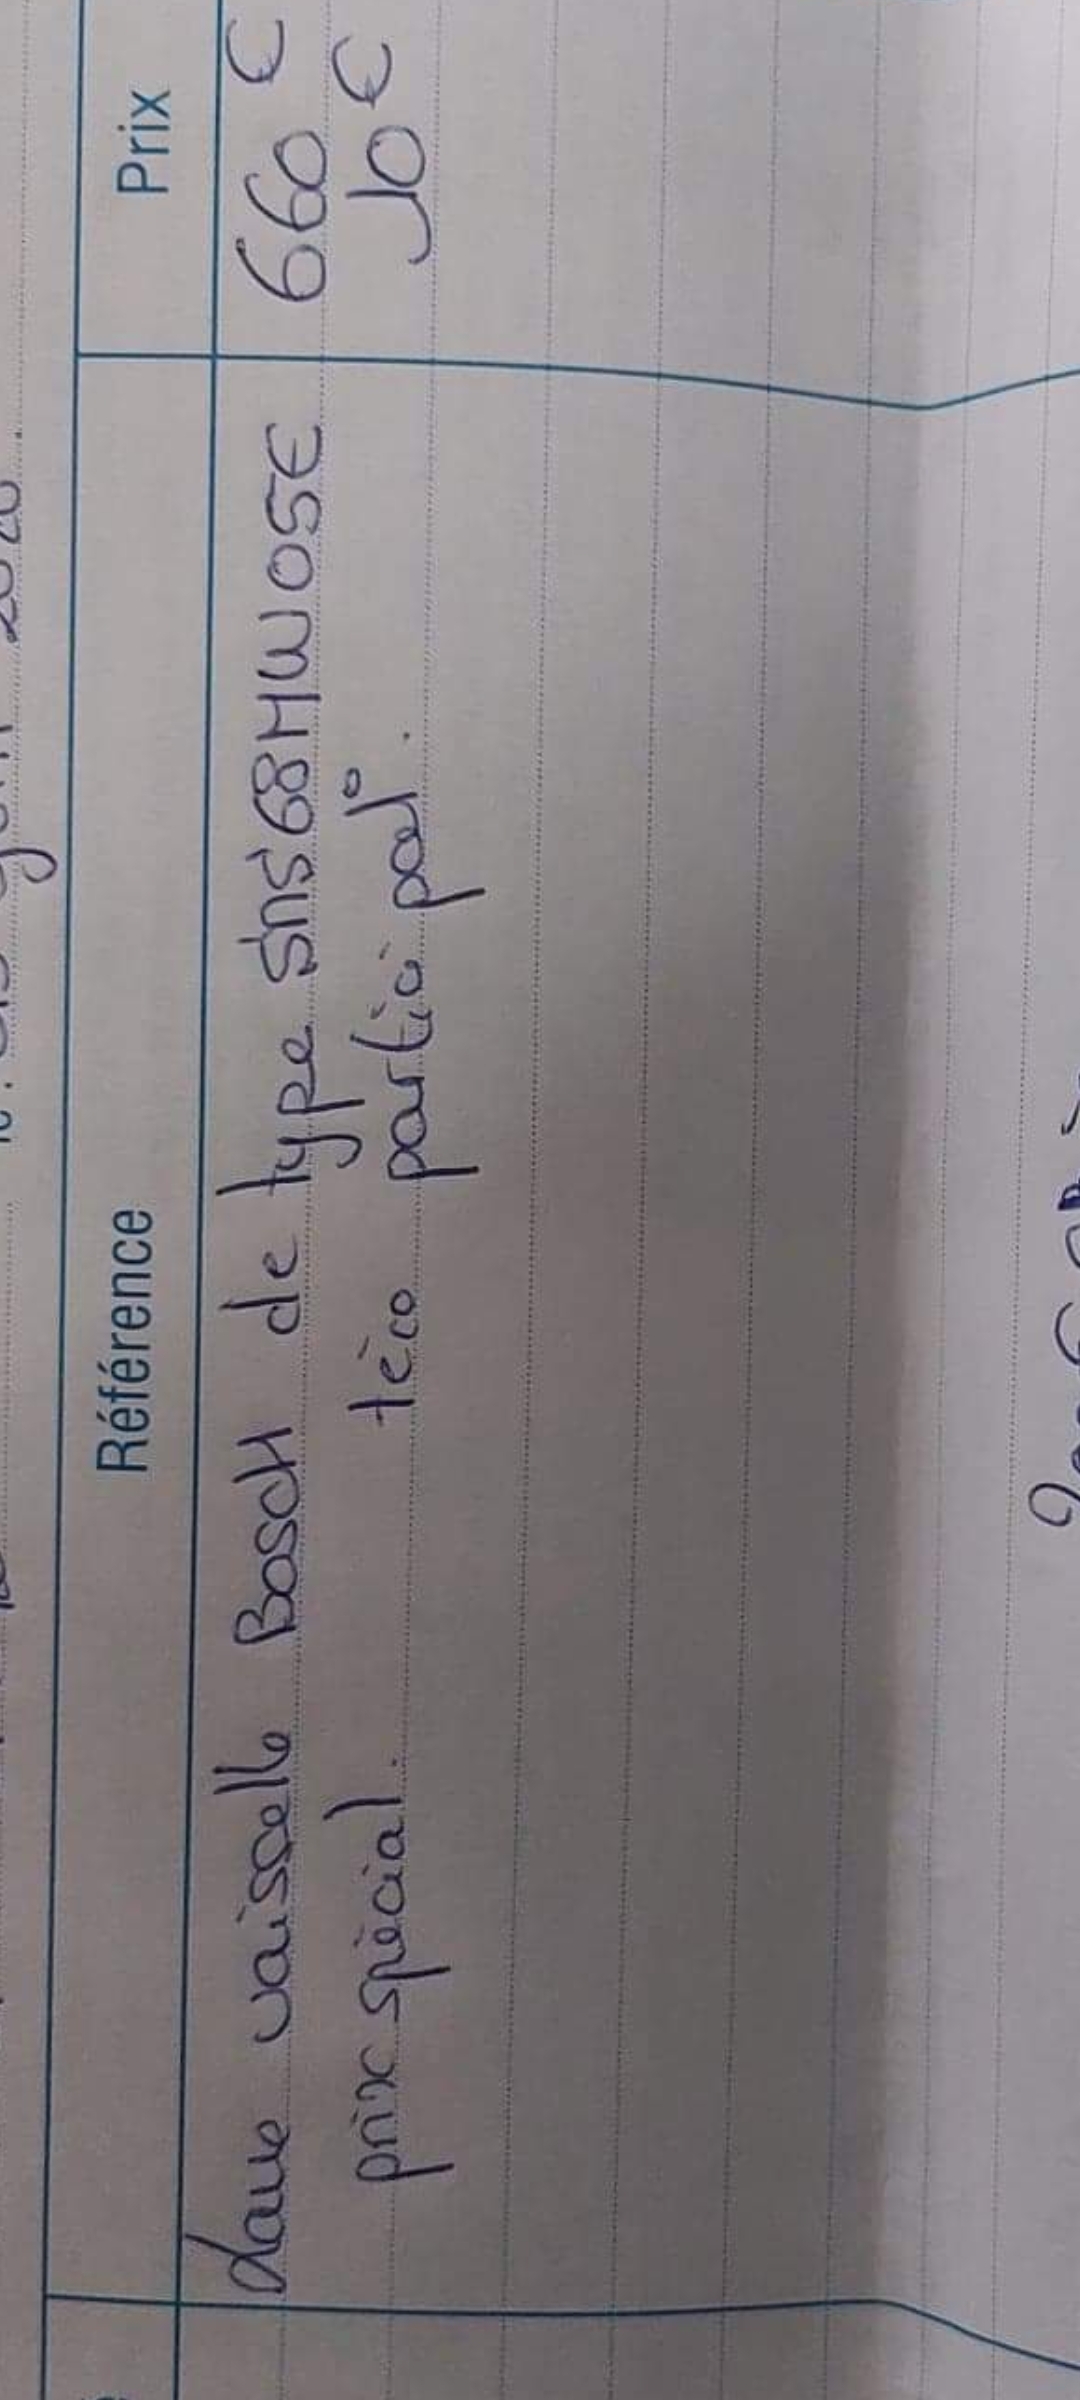 Référence Prix
lave vaisselle Bosch de type SNS68MW05E 660 €
prix spécial. téco partici pat°. 10 €